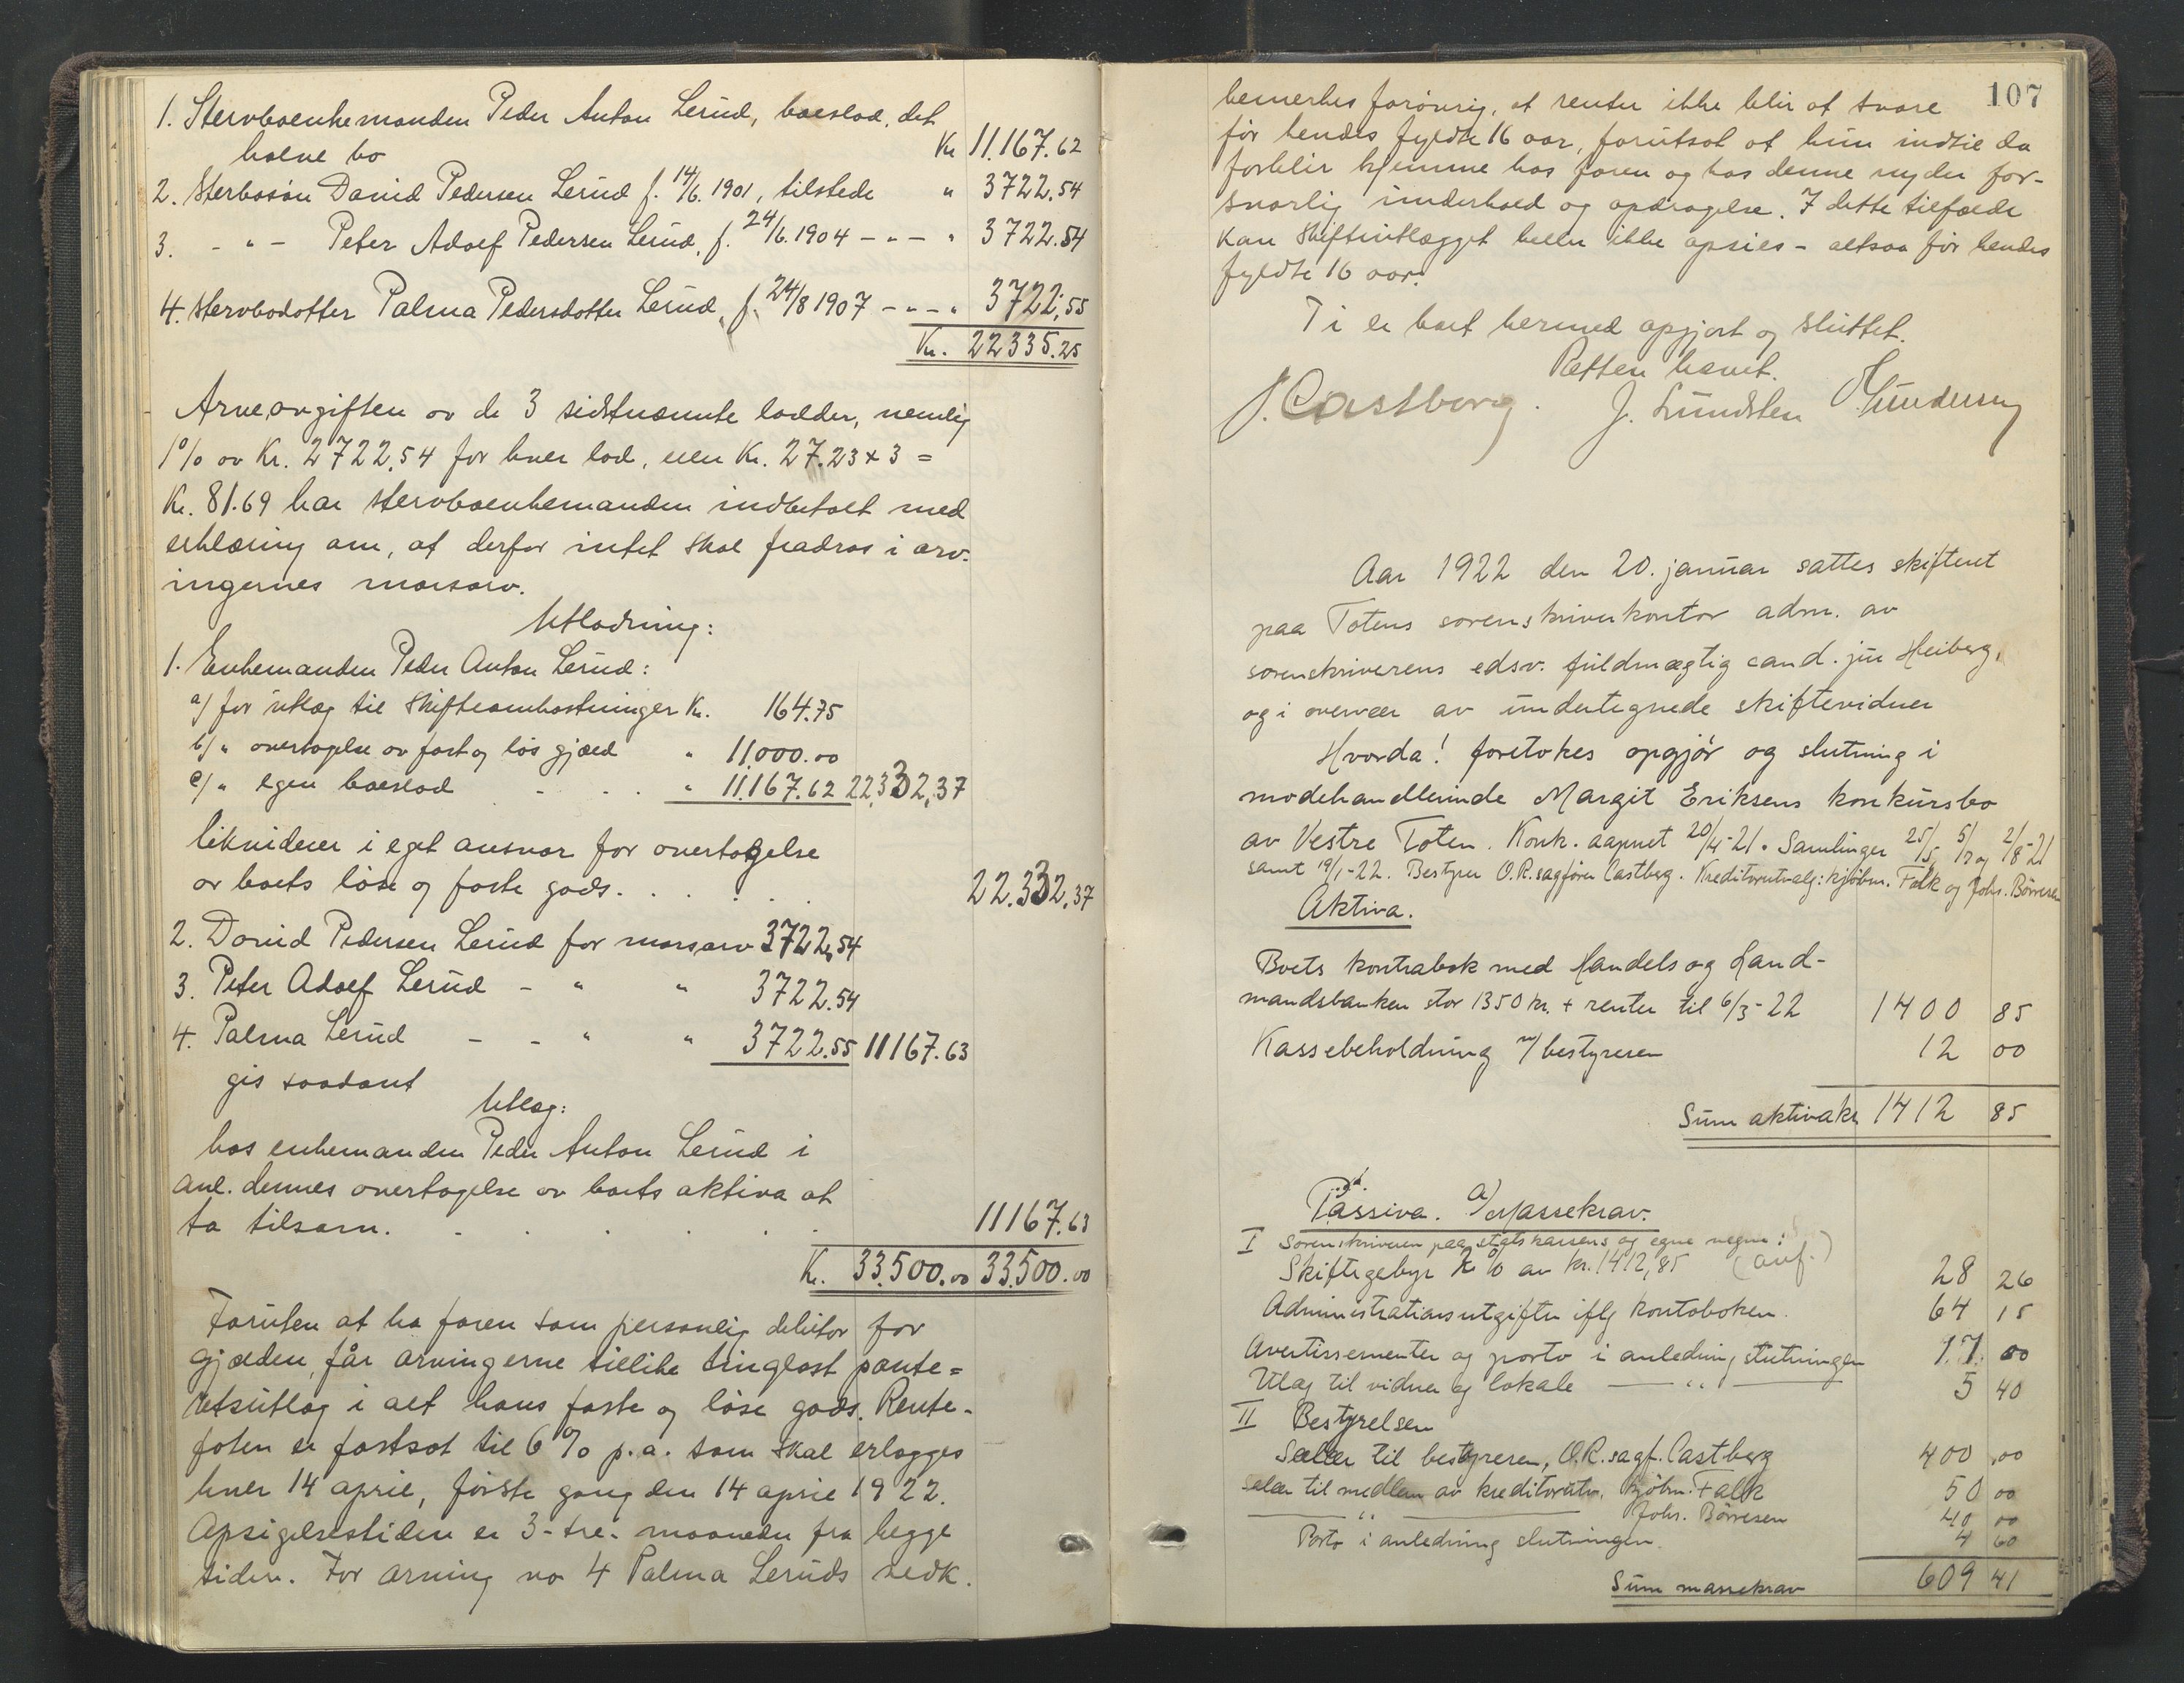 1. Stervboenkemanden Peder Anton Lerud, boeslod, det
halve bo Kr 11.167.62
2. Sterbosøn David Pedersen Lerud f. 14/6. 1901, tilstede " 3722.54
3. - " - Peter Adolf Pedersen Lerud, f. 24/6. 1904 - " - " 3722.54
4. stervbodotter Palma Pedersdotter Lerud, f. 24/8 1907 - " - " 3722,55
Kr. 22335.25
Arveavgiften av de 3 sidstnævnte lodder, nemlig
1% av Kr. 2722.54 for hver lod, eller Kr. 27.23 x 3 =
Kr. 81.69 har stervboenkemanden indbetalt med
erklæring om, at derfor intet skal fradras i arv-
ingernes morsarv.
Utlodning:
1. Enkemanden Peder Anton Lerud:
a/ for utlæg til skifteomkostninger Kr. 164.75
b/ " overtagelse av fast og løs gjæld " 11.000.00
c/ " egen boeslod - . . " 11.167.62 22,332,37
likviderer i eget ansvar for overtagelse
av boets løse og faste gods. . . . . 22.332.37
2. David Pedersen Lerud for morsarv 3722,54
3. Peter Adolf Lerud - " " 3722.54
4. Palma Lerud - - " " 3722.55 11167.63
gis saadant
Utlæg:
hos enkemanden Peder Anton Lerud i
anl. dennes overtagelse av boets aktiva at
ta tilsam. . . . . . 11167.63
Kr. 33.500.00 33.500.00
Foruten at ha faren som personlig debitor for
gjælden, får arvingerne tillike tinglæst pante=
retsutlæg i alt hans faste og løse gods. Rente-
foten er fastsat til 6% p.a. som skal erlægges
hver 14 april, første gang den 14 april 1922.
Opsigelsestiden er 3-tre- maaneder fra begge
sider. For arving no 4 Palma Leruds vedk.
107
bemerkes forøvrig, at renter ikke blir at svare
før hendes fyldte 16 aar, forutsat at hun indtil da
forblir hjemme hos faren og hos denne nyder for-
svarlig underhold og opdragelse. I dette tilfælde
kan skifteutlægget heller ikke opsies - altsaa før hendes
fyldte 16 aar.
Ti er boet hermed opgjort og sluttet.
Retten hævet.
J. Castberg. J. Lundsten Gundersen
Aar 1922 den 20. januar sattes skifteret
paa Totens sorenskriverkontor adm. av
sorenskriverens edsv. fuldmægtig cand. jur Heiberg,
og i overvær av undertegnede skiftevidner
Hvorda! foretokes opgjør og slutning i
modehandlerinde Margit Eriksens konkursbo
av Vestre Toten. Konk. aapnet 20/4-21. Samlinger 25/5, 5/7 og 2/8-21
samt 19/1-22. Bestyrer O.R.sagfører Castberg. Kreditorutvalg: kjøbm. Falk og Johs. Børresen
Aktiva.
Boets kontrabok med Handels og Land-
mandsbanken stor 1350 kr. + renter til 6/3-22 1400 85
Kassebeholdning m/ bestyreren 12 00
Sum aktiva kr 1412 85
Passiva. a/ Massekrav.
I Sorenskriveren paa statskassens og egne vegne:
Skiftegebyr 2 % av kr. 1412,85 28 26
Administrationsutgifter iflg kontoboken. 64 15
Avertissementer og porto i anledning slutningen 17. 00
Utlæg til vidner og lokale — " — 5 40
II Bestyrelsen
Salær til bestyreren, O.R.sagf. Castberg 400 .00
salær til medlem av kreditorutv. kjøbm. Falk 50 00
— " — Johs. Børresen 40 00
Porto i anledning slutningen. 4 60
Sum massekrav 609 41